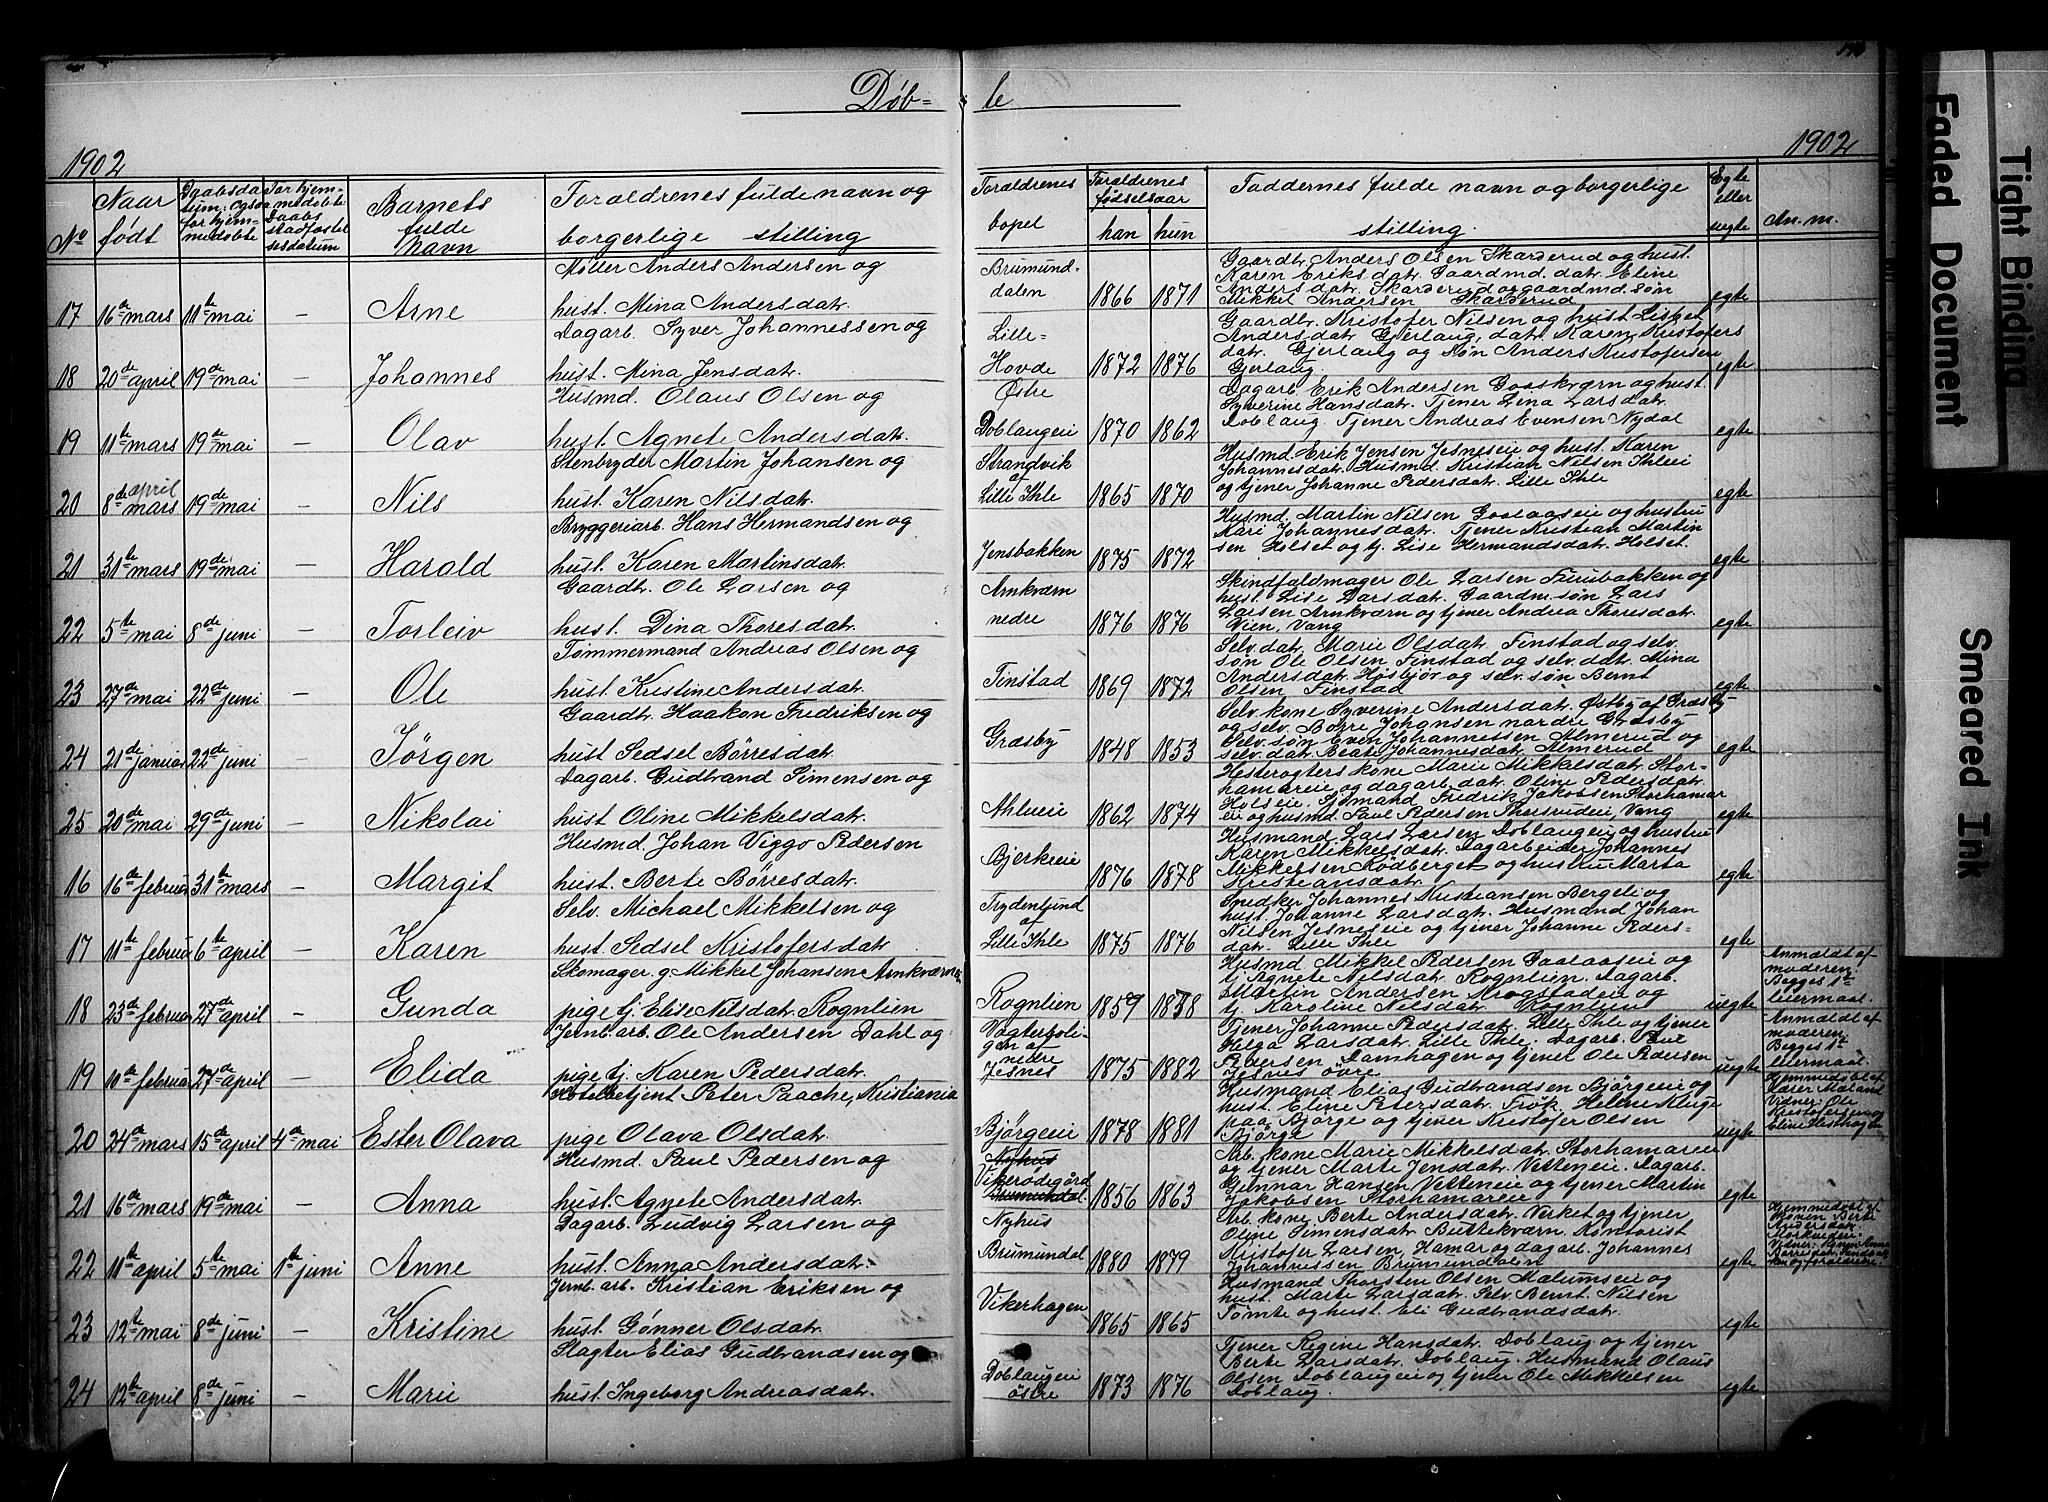 Døb= te
1902
1902
No
Naar født
Daabsdatum: ogsaa for hjemmedøbte
For hjemmedøbte Daabs stadfæstelsesdatum
Barnets fulde Navn
Forældrenes fulde navn og borgerlige stilling
Forældrenes bopel
Forældrenes fødselsaar
han hun
Faddernes fulde navn og borgerlige stilling.
Egte eller uegte
An. m.
17 16de mars 11te mai — Arne
Møller Anders Andersen og
hust. Mina Andersdatr.
Brumund-
dalen
1866 1871
Gaardbr. Anders Olsen Skarderud og hust.
Karen Eriksdatr. Gaardmd. datr. Eline
Andersdatr. Skarderud og gaardmd. søn
Mikkel Andersen Skarderud
egte
18 20de april 19de mai — Johannes
Dagarb. Syver Johannessen og
hust. Mina Jensdatr.
Lille-
Hovde
1872 1876
Gaardbr. Kristofer Nilsen og hust Lisbet
Andersdatr. Gjerlaug, datr. Karen Kristofers
datr. Gjerlaug og søn Anders Kristofersen
Gjerlaug
egte
19 11te mars 19de mai — Olav
Husmd. Olaus Olsen og
hust. Agnete Andersdatr.
Østre
Doblaugeie
1870 1862
Dagarb. Erik Andersen Gaaskværn og hust.
Syverine Hansdatr. Tjener Lina Larsdatr.
Doblaug. Tjener Andreas Evensen Nydal
egte
20 8de april mars 19de mai — Nils
Stenbryder Martin Johansen og
hust. Karen Nilsdatr.
Strandvik
af
Lille Ihle
1865 1870
Husmd. Erik Jensen Jesneseie og hust. Karen
Johannesdatr. Husmd. Kristian Nilsen Ihleei
og tjener Johanne Pedersdatr. Lille Ihle
egte
21 31te mars 19de mai — Harald
Bryggeriarb. Hans Hermandsen og
hust. Karen Martinsdatr.
Jensbakken
1875 1872
Husmd. Martin Nilsen Gaalaaseie og hustru
Kari Johannesdatr. Tjener Kristian Martin
sen Holset og tj. Lise Hermandsdatr. Holset.
egte
22 5te mai 8de juni — Torleiv
Gaardbr. Ole Larsen og
hust. Dina Thoresdatr.
Arnkværn
nedre
1876 1876
Skindfældmager Ole Larsen Furubakken og
hust. Lise Larsdatr. Gaardm. søn Lars
Larsen Arnkværn og tjener Andrea Thoresdatr.
Vien, Vang
egte
23 27de mai 22de juni — Ole
Tømmermand Andreas Olsen og
hust. Kristine Andersdatr.
Finstad
1869 1872
Selv. datr. Marie Olsdatr. Finstad og selv.
søn Ole Olsen Finstad og selv. datr. Mina
Andersdatr. Høsbjør og selv. søn Bernt
Olsen Finstad
egte
24 21de januar 22de juni — Jørgen
Gaardbr. Haakon Fredriksen og
hust Sedsel Børresdatr.
Græsby
1848 1853
Selv. kone Syverine Andersdatr. Østby af Græsby
og selv. Børre Johansen nordre Græsby
Selv. søn Even Johannessen Almerud og
selv. datr. Beate Johannesdatr. Almerud
egte
25 20de mai 29de juni — Nikolai
Dagarb. Gudbrand Simensen og
hust Oline Mikkelsdatr.
Ahlueie
1862 1874
Hesterøgters kone Marie Mikkelsdatr. Stor-
hamareie og dagarb. datr. Oline Pedersdatr.
Holseie. Sjømand Fredrik Jakobsen Storhamar
ei og husmd. Paul Pedersen Thorsrudeie, Vang
egte
16 16de februar 31te mars — Margit
Husmd. Johan Viggo Pedersen
hust. Berte Børresdatr.
Bjerkeeie
1876 1878
Husmand Lars Larsen Doblaugeie og hustru
Karen Mikkelsdatr. Dagarbeider Johannes
Mikkelsen Rødberget og hustru Marta
Kristiansdatr.
egte
17 11te februar 6te april — Karen
Selv. Michael Mikkelsen og
hust. Sedsel Kristofersdatr.
Frydenlund
af
Lille Ihle
1875 1876
Snedker Johannes Kristiansen Bergeli og
hust. Johanne Larsdatr. Husmand Johan
Nilsen Jesneseie og tjener Johanne Peders-
datr. Lille Ihle
egte
18 23de februar 27de april — Gunda
Skomager g Mikkel Johansen Arnkværnei
pige tj. Elise Nilsdatr. Rognlien
Rognlien
1859 1878
Husmd Mikkel Pedersen Gaalaaseie og
tj. Agnete Nilsdatr. Rognlien. Dagarb.
Martin Andersen Krogstadeie og
tj. Karoline Nilsdatr. Rognlien
uegte
Anmeldt af
moderen.
Begges 1te
leiermaal.
19 10de februar 27de april — Elida
Jernb. arb. Ole Andersen Dahl og
pige tj. Karen Pedersdatr.
Vogterboli-
gen af
nedre
Jesnes
1875 1882
Tjener Johanne Pedersdatr. Lille Ihle og tjener
Helga Larsdatr. Lille Ihle. Dagarb. Paul
Pedersen Damhagen og tjener Ole Pedersen
Jesnes øvre
uegte
Anmeldt af
moderen.
Begges 1te
leiermaal.
20 24de mars 15de april 4de mai Ester Olava
Hotelbetjent Peter Paache, Kristiania
pige Olava Olsdatr.
Bjørgeeie
1878 1881
Husmand Elias Gudbrandsen Bjørgeeie og
hust. Eline Petersdatr. Frøk. Helene Kluge
paa Bjørge og tjener Kristofer Olsen
Bjørge
uegte
Hjemmedøbt af
Lærer Mæland
Vidner: Ole
Kristofersen og
Eline Hesthagen
21 16de mars 19de mai — Anna
Husmd. Paul Pedersen og
hust. Agnete Andersdatr.
Nyhus
Vikerødegård
Brumunddal.
1856 1863
Arb. kone Marie Mikkelsdatr. Storhamareie
og tjener Marte Jensdatr. Vetteneie. Dagarb.
Gunnar Hansen Vetteneie og tjener Martin
Jakobsen Storhamareie
egte
22 11te april 5te mai 1te juni Anne
Dagarb. Ludvig Larsen og
hust. Anna Andersdatr.
Nyhus
Brumundal
1880 1879
Arb. kone Berte Andersdatr. Verket og tjener
Oline Simensdatr. Buttekværn. Kontorist
Kristofer Larsen, Hamar og dagarb. Johannes
Johannessen Brumundalen
egte
Hjemmedøbt af
konen Berte
Andersdatr.
23 12te mai 8de juni — Kristine
Jernb. arb. Kristian Eriksen og
hust. Gønner Olsdatr.
Vikerhagen
1865 1865
Husmand Thorsten Olsen Malumseie og
hust. Marte Larsdatr. Selv. Bernt Nilsen
Tømte og hust. Eli Gudbrandsdatr.
egte
24 12te april 8de juni — Marie
Slagter Elias Gudbrandsen og
hust. Ingeborg Andreasdatr.
Doblaugeie
østre
1873 1876
Tjener Regine Hansdatr. Doblaug og tjener
Berte Larsdatr. Doblaug. Husmand Olaus
Olsen Doblaugeie og tjener Ole Mikkelsen
Doblaug.
egte
Tight Binding
Faded Document
Smeared Ink